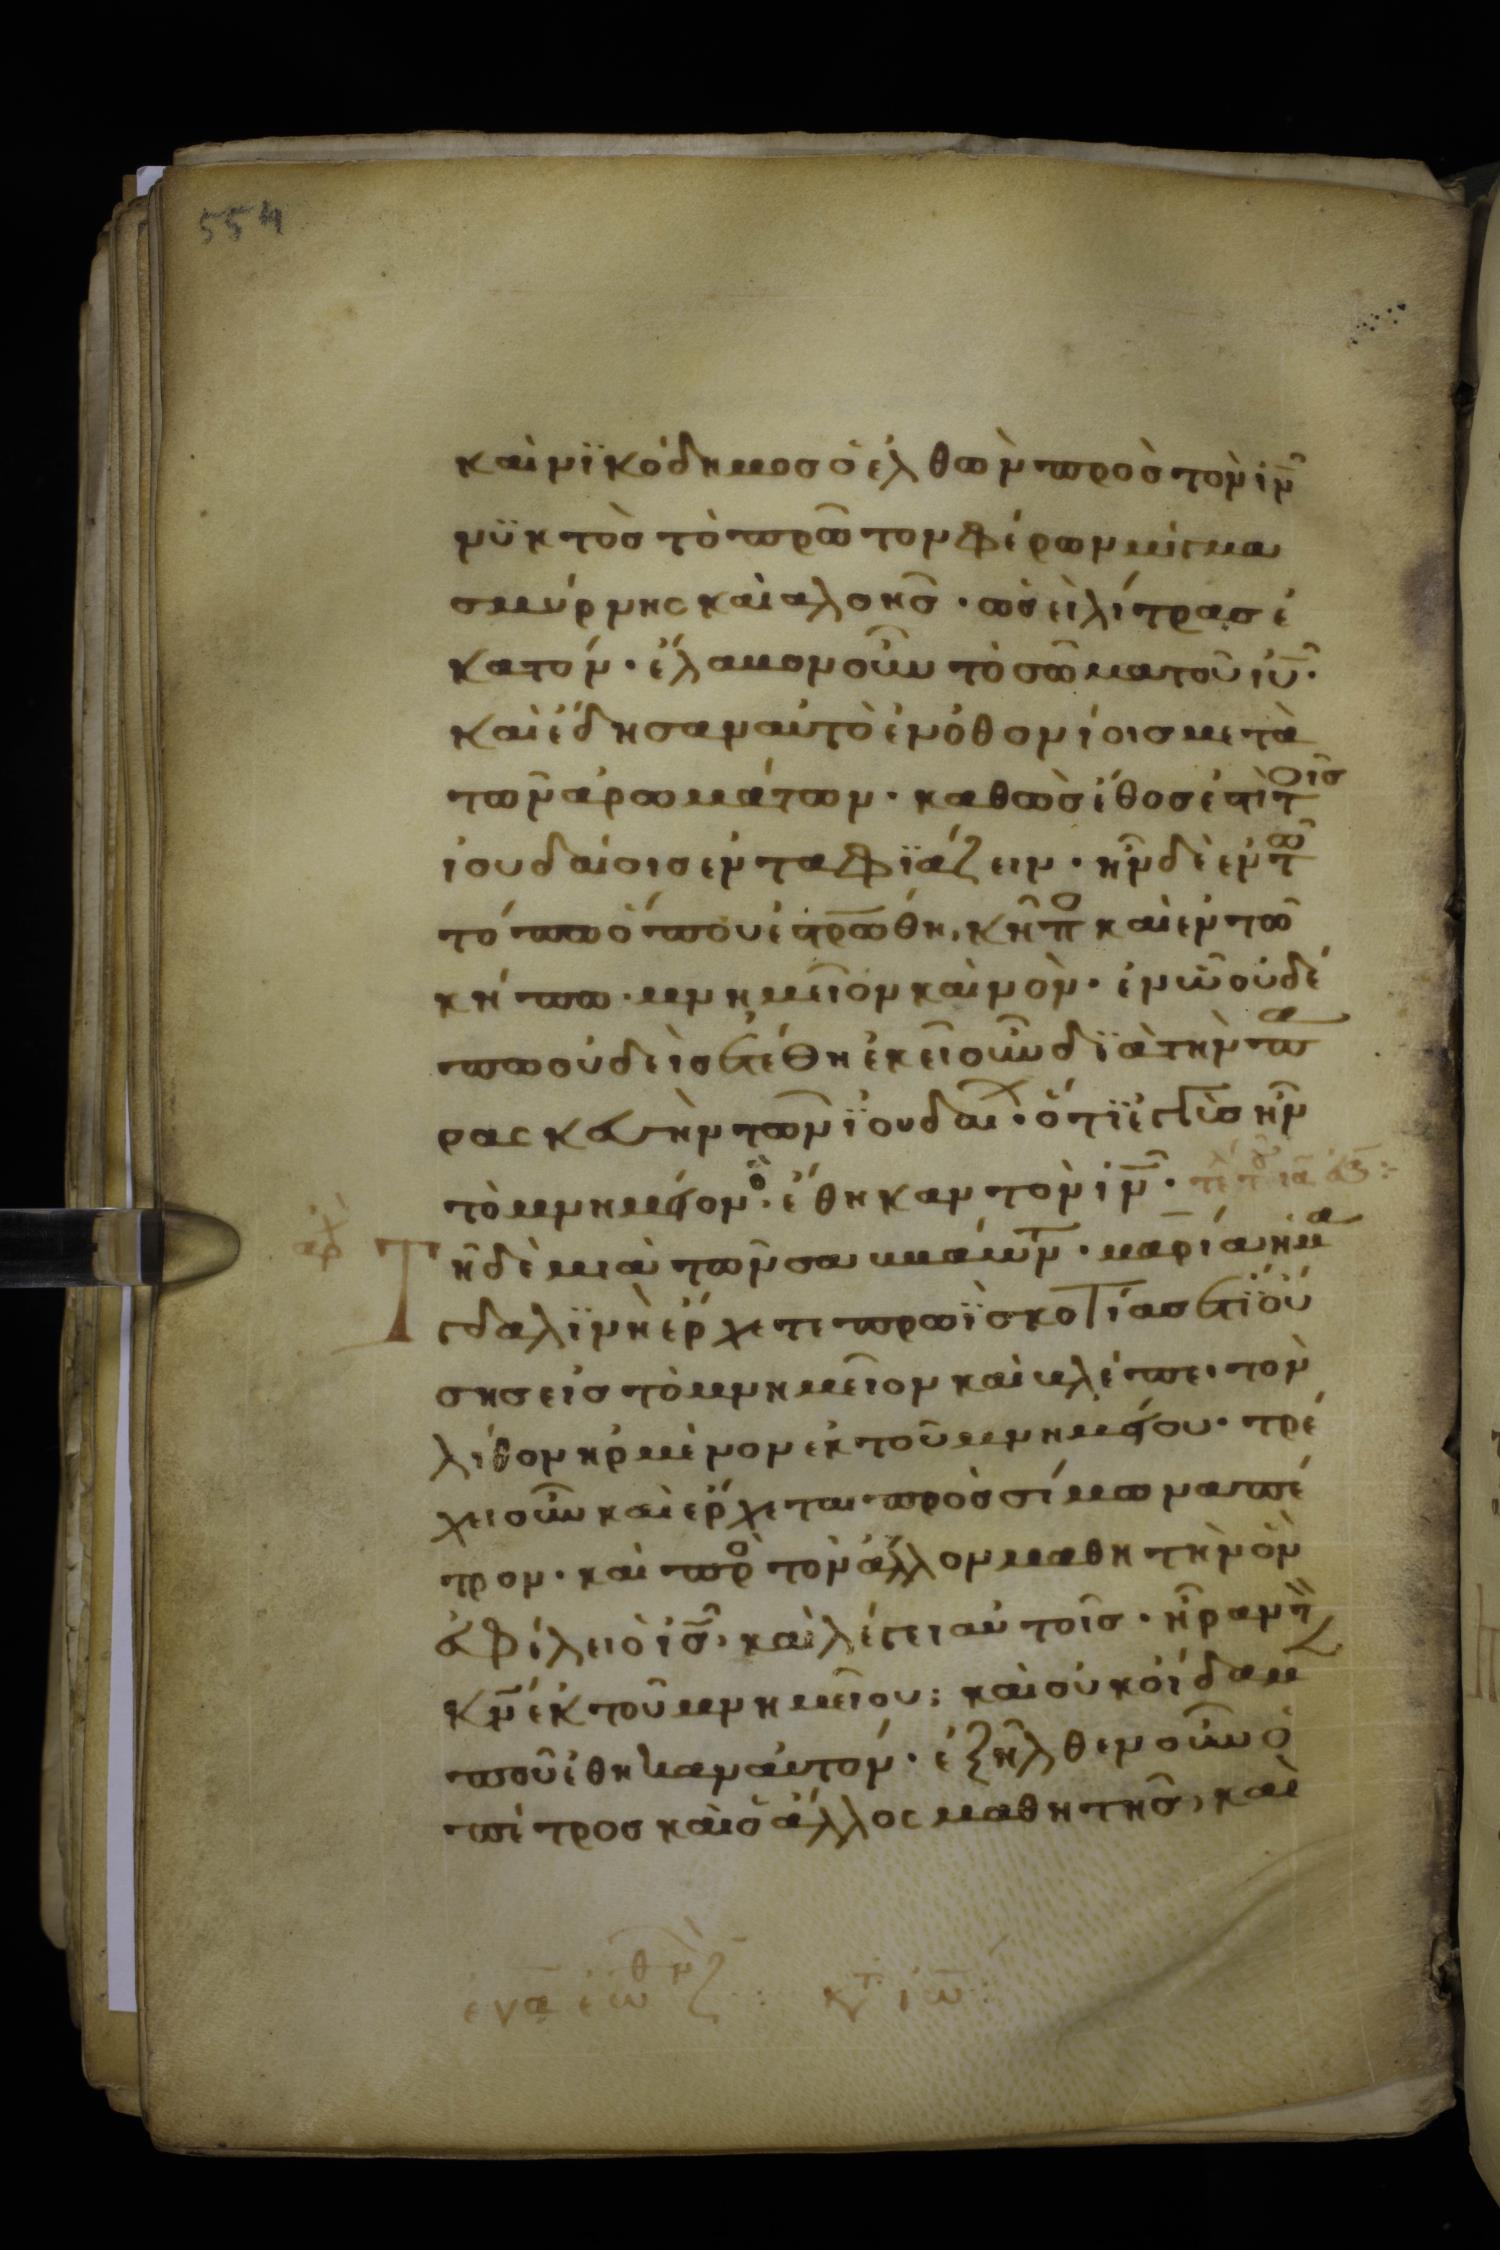 554
καὶ νϊκόδημοσ ὁ ἐλθὼν πρὸσ τὸν ιν̅
νϋκτὸσ τὸ πρῶτον φέρων μίγμα
σμύρνης καὶ αλοησ · ὡσεὶ λίτρασ ἑ
κατόν · ἔλαβον οὖν τὸ σῶμα τοῦ ιυ̅ ·
καὶ ἔδησαν αυτὸ ἐν ὀθονίοισ μετὰ
τῶν ἀρωμάτων · καθὼσ ἔθοσ ἐστὶ τοῖσ
ἰουδαίοισ ενταφϊάζειν · ἦν δὲ εν τῶ
τόπω ὅπου ἐστρωθη, κῆπο καὶ εν τῶ
κήπω · μνημεῖον καινὸν · ἐν ὧ οὐδέ
πω οὐδεὶσ ἐτέθη ἐκεῖ οὖν δϊὰ τὴν πα
ρασκευὴν τῶν ϊουδαι · ὅτϊ ἐγγὺσ ἦν
τὸ μνημεῖον · ἔθηκαν τὸν ιν̅ ·
αρχ Τῆ δὲ μιὰ τῶν σαββάτων · μαρία ἡ μα
γδαλϊνὴ ἔρχετε πρωῒ σκοτίασ ἔτϊ οὔ
σησ εἰσ τὸ μνημεῖον καὶ βλέπει τὸν
λίθον ηρμένον εκ τοῦ μνημείου · τρέ
χει οὖν καὶ ἔρχεται πρὸσ σίμωνα πέ
τρον · καὶ προ τὸν ἄλλον μαθητὴν ὃν
ἐφίλει ὁ ισ̅ · καὶ λέγει αυτοῖσ · ἦραν τ
κν̅ ἐκ τοῦ μνημείου ; καὶ οὐκ οἴδαμ
ποῦ ἔθηκαν ἀυτόν · ἐξῆλθεν οὖν ὁ
πέτροσ καὶ ὁ ἄλλος μαθητησ, καὶ